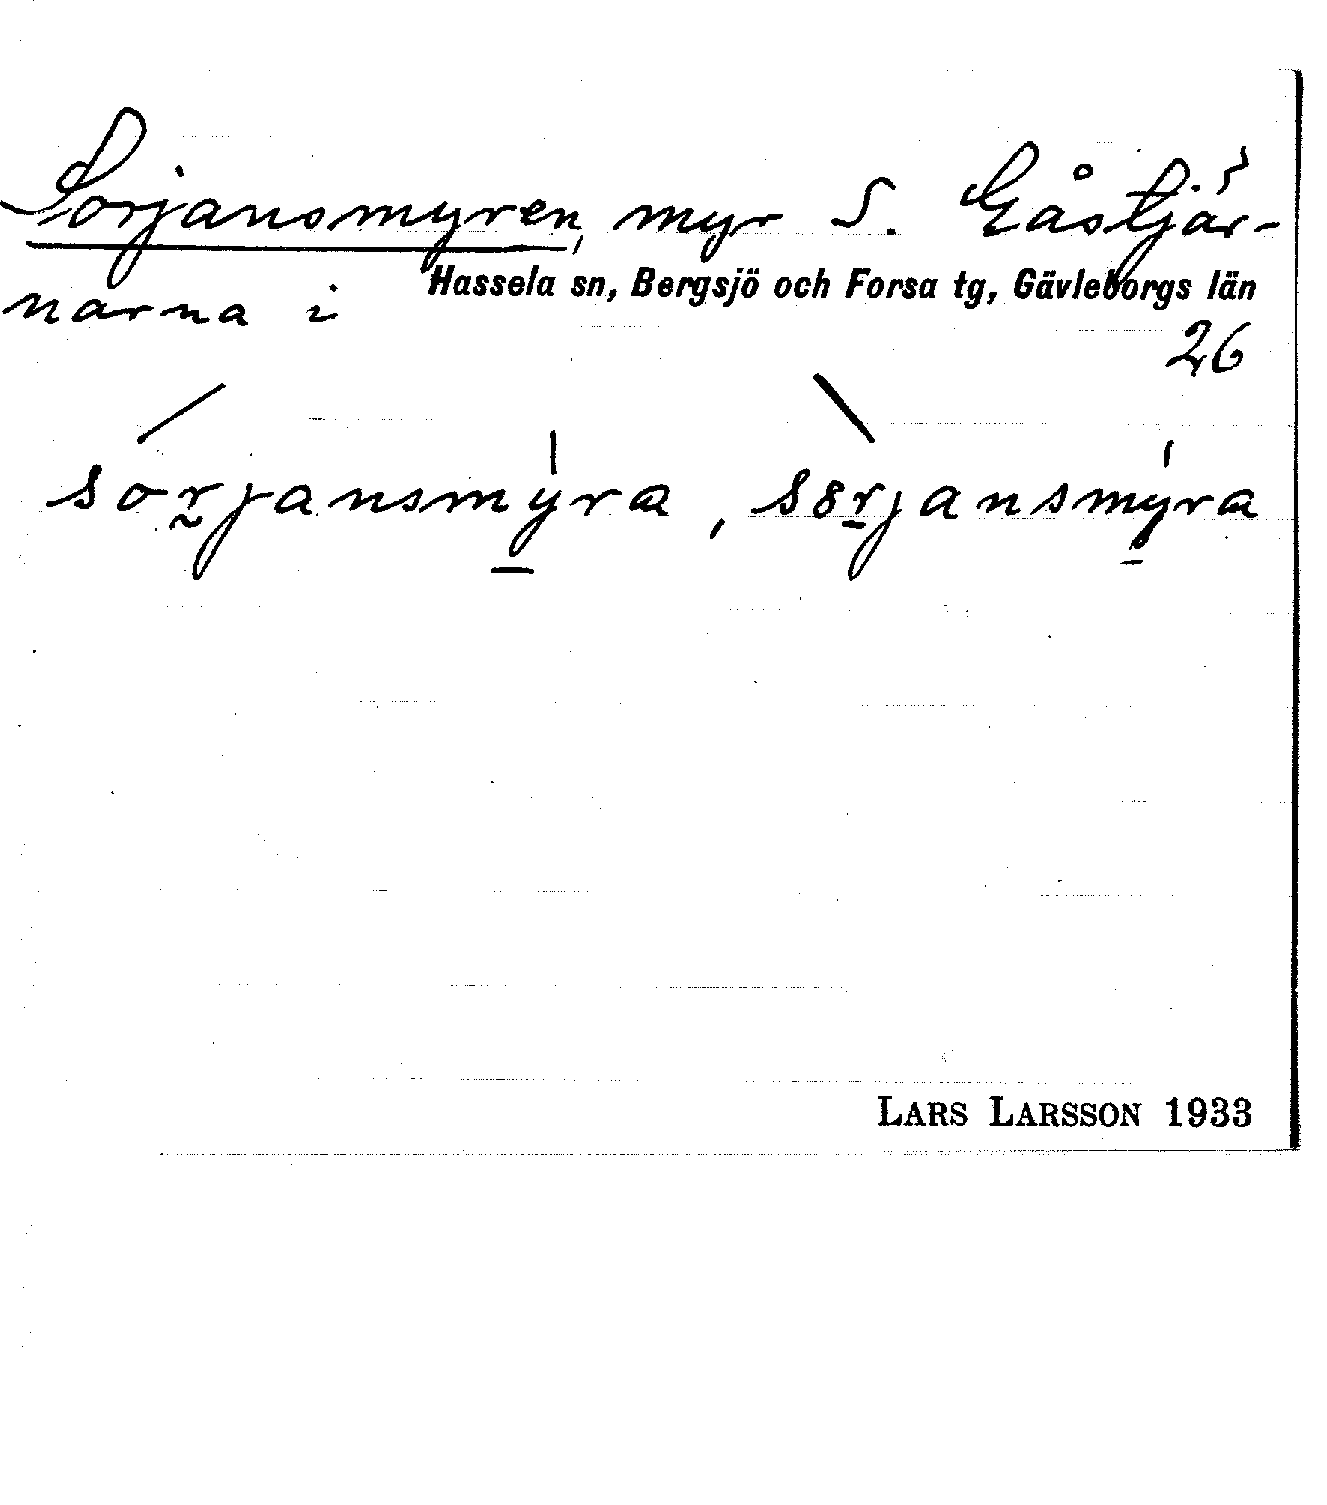 Sorjansmyren, myr S. Gåstjär-
narna i Hassela sn, Bergsjö och Forsa tg, Gävleborgs län
26
sorjansmyra, sörjansmyra
LARS LARSSON 1933